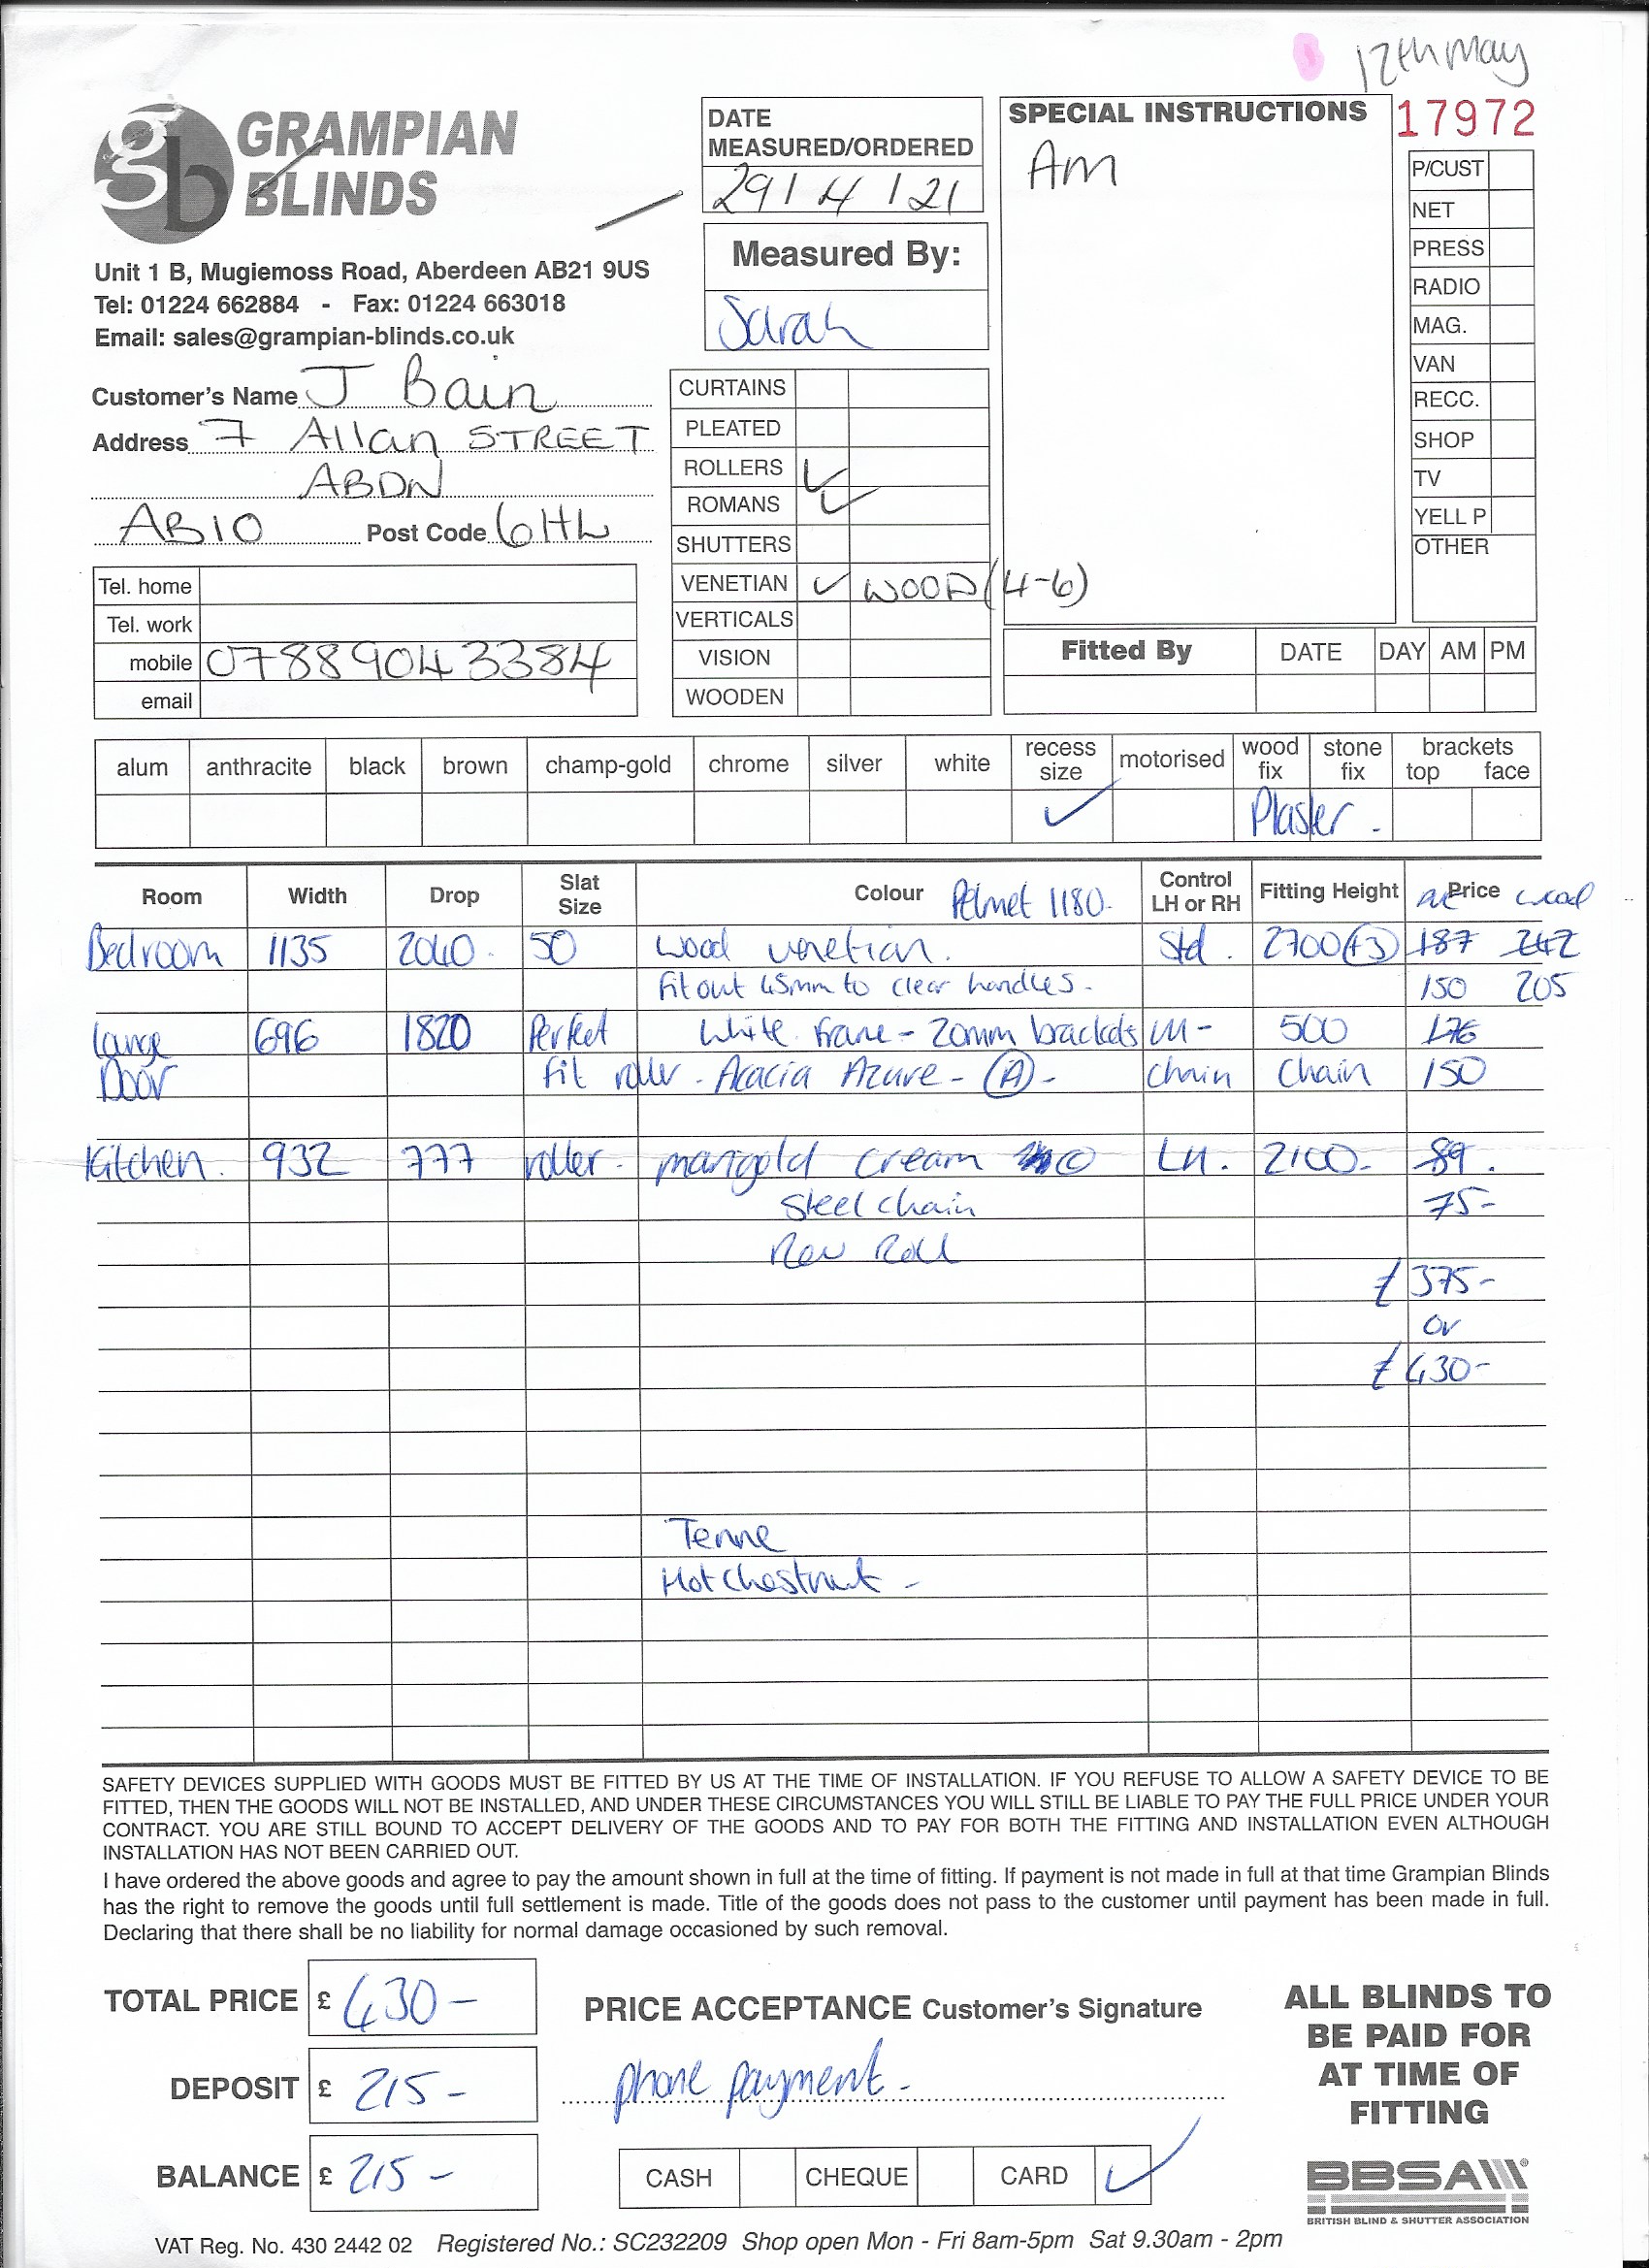 12th May
GRAMPIAN
BLINDS
gb
Unit 1 B, Mugiemoss Road, Aberdeen AB21 9US
Tel: 01224 662884 - Fax: 01224 663018
Email: sales@grampian-blinds.co.uk
DATE
MEASURED/ORDERED
29/4/21
Measured By:
Sarah
SPECIAL INSTRUCTIONS
Am
17972
P/CUST
NET
PRESS
RADIO
MAG.
VAN
RECC.
SHOP
TV
YELL P
OTHER
Customer's Name J Bain
Address 7 Allan STREET
ABDN
AB10 Post Code 6HL
Tel. home
Tel. work
mobile 07889043384
email
CURTAINS
PLEATED
ROLLERS ✓
ROMANS ✓
SHUTTERS
VENETIAN ✓ WOOD (4-6)
VERTICALS
VISION
WOODEN
Fitted By DATE DAY AM PM
alum anthracite black brown champ-gold chrome silver white recess size motorised wood fix stone fix brackets top face
✓ Plaster -
Room Width Drop Slat Size Colour Pelmet 1180. Control LH or RH Fitting Height Price wood
Bedroom 1135 2040 50 wood venetian. Std. 2700 (+3) 187 242
Fit out 45mm to clear handles - 150 205
696 1820 Perfect White Frame - 20mm brackets 500 176
Door Fit roller - Acacia Azure - (A) - chain Chain 150
Kitchen. 932 777 roller - marigold cream (C) LH. 2100- 89.
Steel chain 75-
Rev Roll
£375-
or
£430-
Tenne
Hot Chestnut -
SAFETY DEVICES SUPPLIED WITH GOODS MUST BE FITTED BY US AT THE TIME OF INSTALLATION. IF YOU REFUSE TO ALLOW A SAFETY DEVICE TO BE
FITTED, THEN THE GOODS WILL NOT BE INSTALLED, AND UNDER THESE CIRCUMSTANCES YOU WILL STILL BE LIABLE TO PAY THE FULL PRICE UNDER YOUR
CONTRACT. YOU ARE STILL BOUND TO ACCEPT DELIVERY OF THE GOODS AND TO PAY FOR BOTH THE FITTING AND INSTALLATION EVEN ALTHOUGH
INSTALLATION HAS NOT BEEN CARRIED OUT.
I have ordered the above goods and agree to pay the amount shown in full at the time of fitting. If payment is not made in full at that time Grampian Blinds
has the right to remove the goods until full settlement is made. Title of the goods does not pass to the customer until payment has been made in full.
Declaring that there shall be no liability for normal damage occasioned by such removal.
TOTAL PRICE £ 430-
DEPOSIT £ 215-
BALANCE £ 215-
PRICE ACCEPTANCE Customer's Signature
phone payment -
CASH CHEQUE CARD ✓
ALL BLINDS TO
BE PAID FOR
AT TIME OF
FITTING
BBSA
BRITISH BLIND & SHUTTER ASSOCIATION
VAT Reg. No. 430 2442 02 Registered No.: SC232209 Shop open Mon - Fri 8am-5pm Sat 9.30am - 2pm